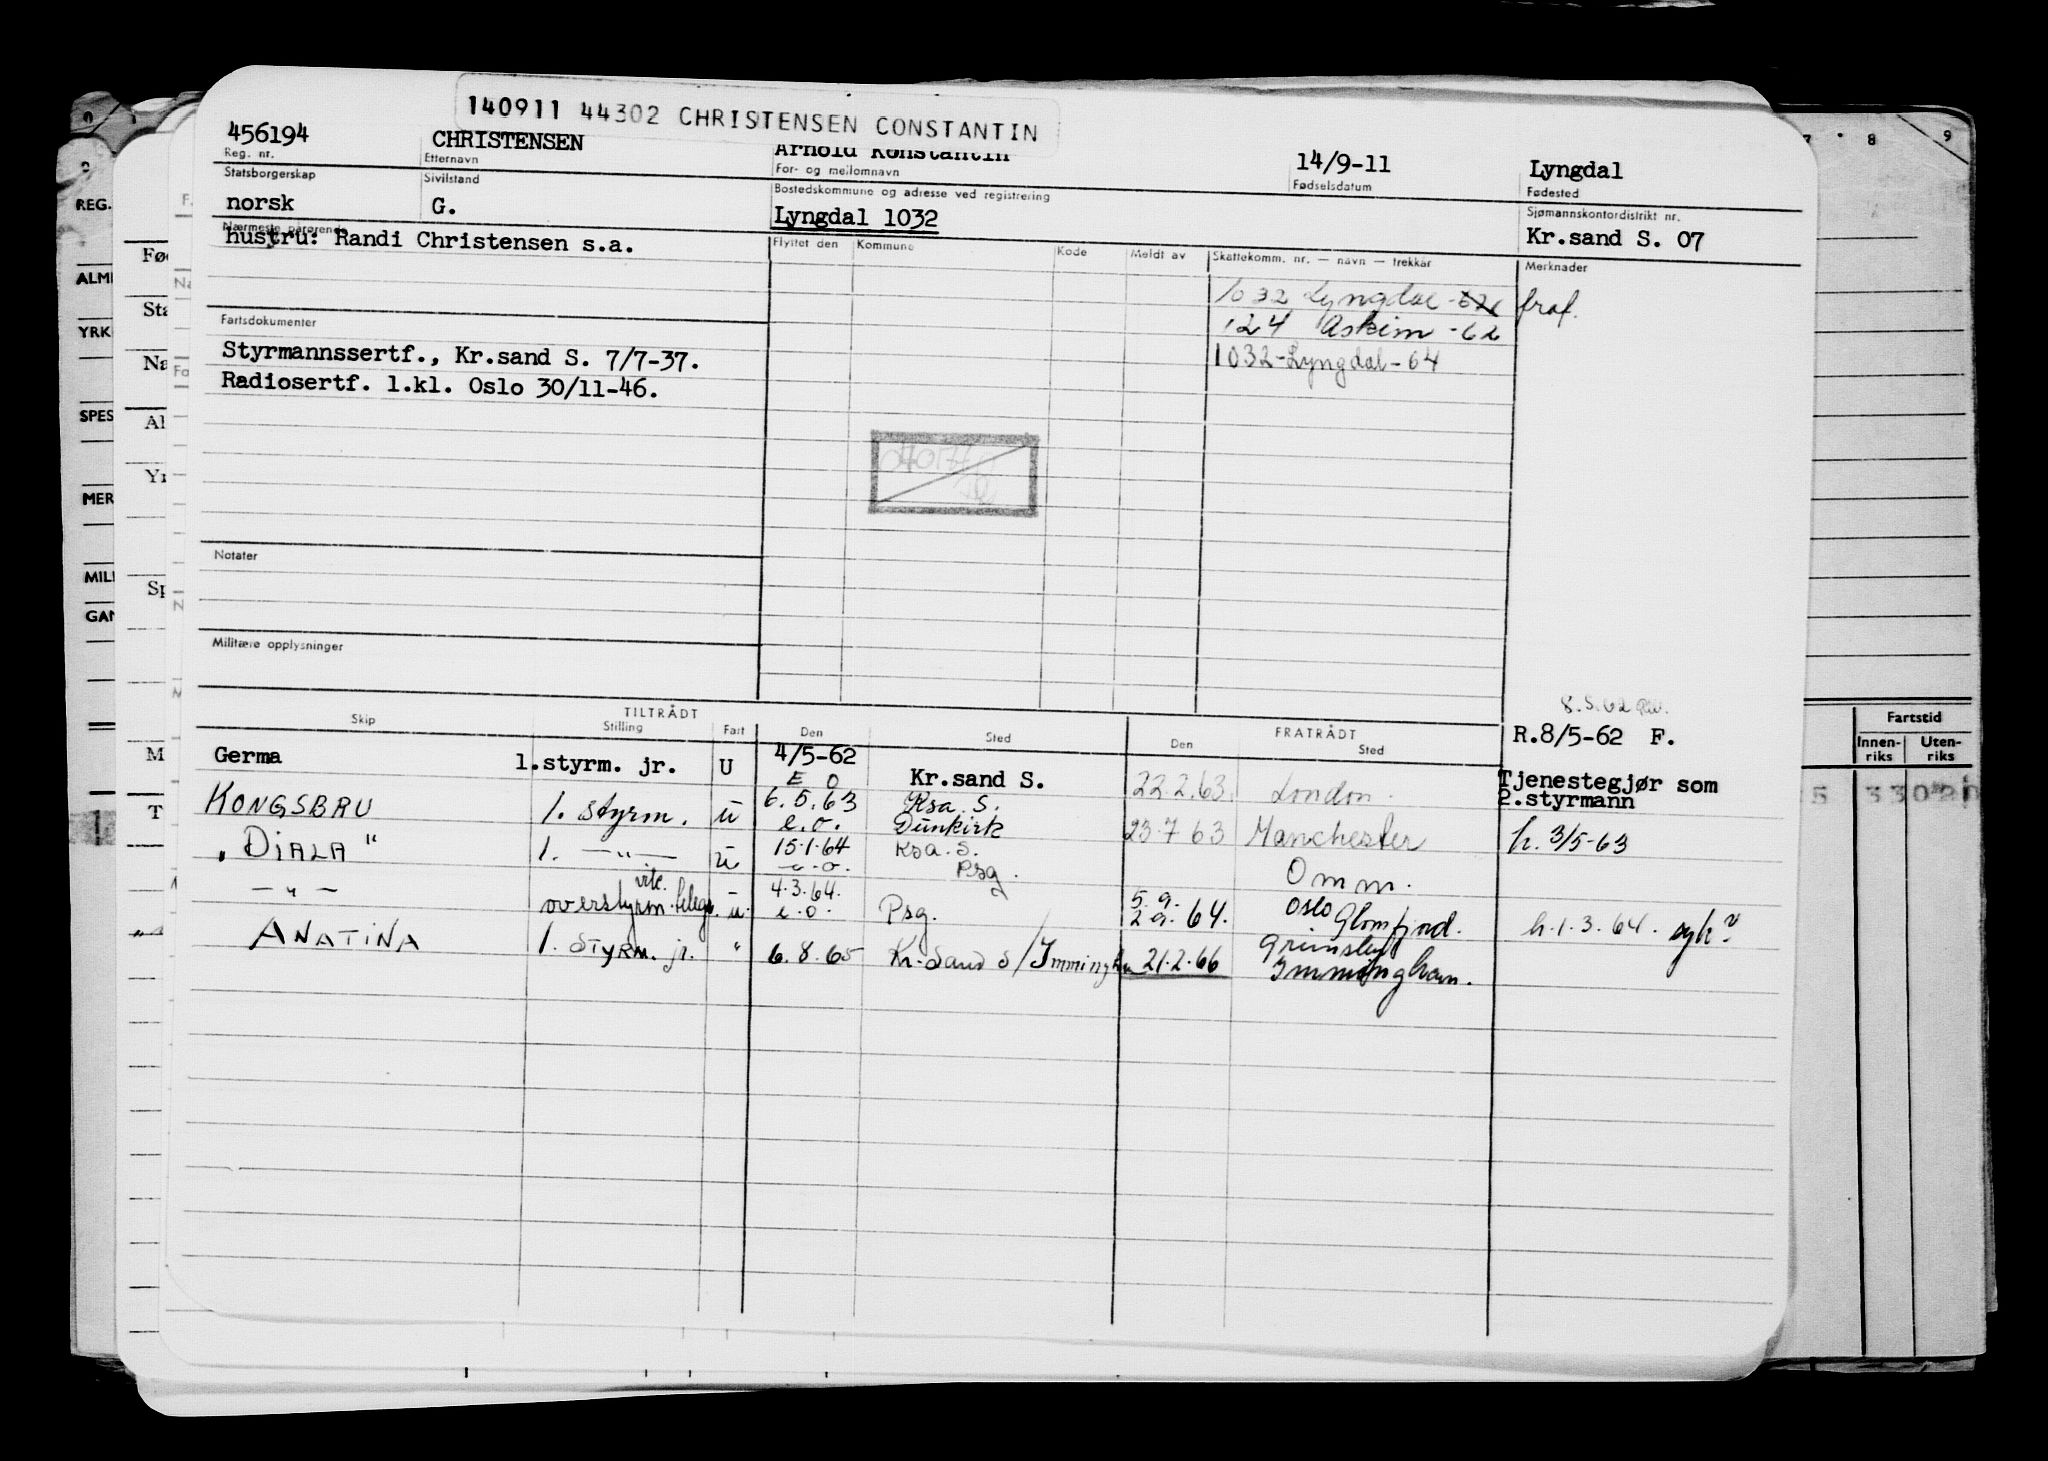 140911 44302 CHRISTENSEN CONSTANTIN
456194 CHRISTENSEN Arnold Konstantin 14/9-11 Lyngdal
Reg. nr. Etternavn For- og mellomnavn Fødselsdatum Fødested
Statsborgerskap Sivilstand Bostedskommune og adresse ved registrering Sjømannskontordistrikt nr.
norsk G. Lyngdal 1032 Kr.sand S. 07
Nærmeste pårørende
hustru: Randi Christensen s.a.
Flyttet den Kommune Kode Meldt av Skattekomm. nr. — navn — trekkår Merknader
1032 Lyngdal -62
124 Askim -62
1032-Lyngdal-64
Fartsdokumenter
Styrmannssertf., Kr.sand S. 7/7-37.
Radiosertf. 1.kl. Oslo 30/11-46.
Notater
Militære opplysninger
8.5.62
TILTRÅDT FRATRÅDT R.8/5-62 F.
Skip Stilling Fart Den Sted Den Sted
Germa 1.styrm. jr. U 4/5-62 Kr.sand S. 22.2.63. London. Tjenestegjør som
2.styrmann
E O
KONGSBRU 1. styrm. u 6.5.63 Ksa. S. 23.7 63 Manchester h. 3/5-63
e.o. Dunkirk
"DIALA" 1. —"— u 15.1.64 Ksa. S. Omm.
e.o. Psg.
—"— overstyrm. u. 4.3.64. Psg. 5.9. Oslo
e.o. 2.9. 64. Glomfjord. h.1.3.64. syk?
ANATINA 1. STYRM. jr. " 6.8.65 Kr.Sand S/Immingham 21.2.66 Grimsby
Immingham.
REG.
ALM
YRK
SPES
MER
MILI
GAN
Fartstid
Innen-
riks
Uten-
riks
7 8 9